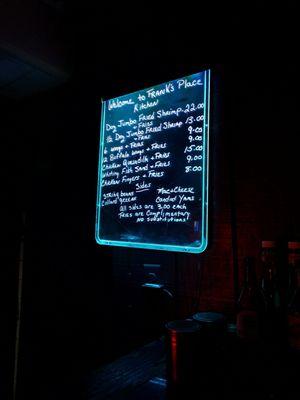 Welcome to Frank's Place
Kitchen
Doz Jumbo Fried Shrimp 22.00
+ Fries
½ Doz Jumbo Fried Shrimp 13.00
+ Fries
6 wings + Fries 9.00
12 Buffalo wings + Fries 15.00
Chicken Quesadilla + Fries 9.00
Whiting Fish Sand + Fries 9.00
Chicken Fingers + Fries 8.00
Sides
String beans Mac & Cheese
Collard greens Candied Yams
All sides are 3.00 each
Fries are Complimentary
No substitutions